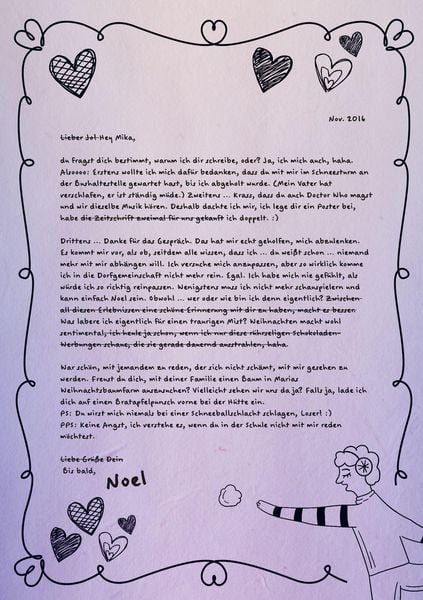 Nov. 2016
Lieber Jol Hey Mika,
du fragst dich bestimmt, warum ich dir schreibe, oder? Ja, ich mich auch, haha.
Alsoooo: Erstens wollte ich mich dafür bedanken, dass du mit mir im Schneesturm an
der Bushaltestelle gewartet hast, bis ich abgeholt wurde. (Mein Vater hat
verschlafen, er ist ständig müde.) Zweitens ... Krass, dass du auch Doctor Who magst
und wir dieselbe Musik hören. Deshalb dachte ich mir, ich lege dir ein Poster bei,
habe die Zeitschrift zweimal für uns gekauft ich doppelt. :)
Drittens ... Danke für das Gespräch. Das hat mir echt geholfen, mich abzulenken.
Es kommt mir vor, als ob, seitdem alle wissen, dass ich ... du weißt schon ... niemand
mehr mit mir abhängen will. Ich versuche mich anzupassen, aber so wirklich komme
ich in die Dorfgemeinschaft nicht mehr rein. Egal. Ich habe mich nie gefühlt, als
würde ich so richtig reinpassen. Wenigstens muss ich nicht mehr schauspielern und
kann einfach Noel sein. Obwohl ... wer oder wie bin ich denn eigentlich? Zwischen
all diesen Erlebnissen eine schöne Erinnerung mit dir zu haben, macht es besser
Was labere ich eigentlich für einen traurigen Mist? Weihnachten macht wohl
sentimental, ich heule ja schon, wenn ich nur diese rührseligen Schokoladen-
Werbungen schaue, die sie gerade dauernd ausstrahlen, haha.
War schön, mit jemandem zu reden, der sich nicht schämt, mit mir gesehen zu
werden. Freust du dich, mit deiner Familie einen Baum in Marias
Weihnachtsbaumfarm auszusuchen? Vielleicht sehen wir uns da ja? Falls ja, lade ich
dich auf einen Bratapfelpunsch vorne bei der Hütte ein.
PS: Du wirst mich niemals bei einer Schneeballschlacht schlagen, Loser! :)
PPS: Keine Angst, ich verstehe es, wenn du in der Schule nicht mit mir reden
möchtest.
Liebe Grüße Dein
Bis bald,
Noel